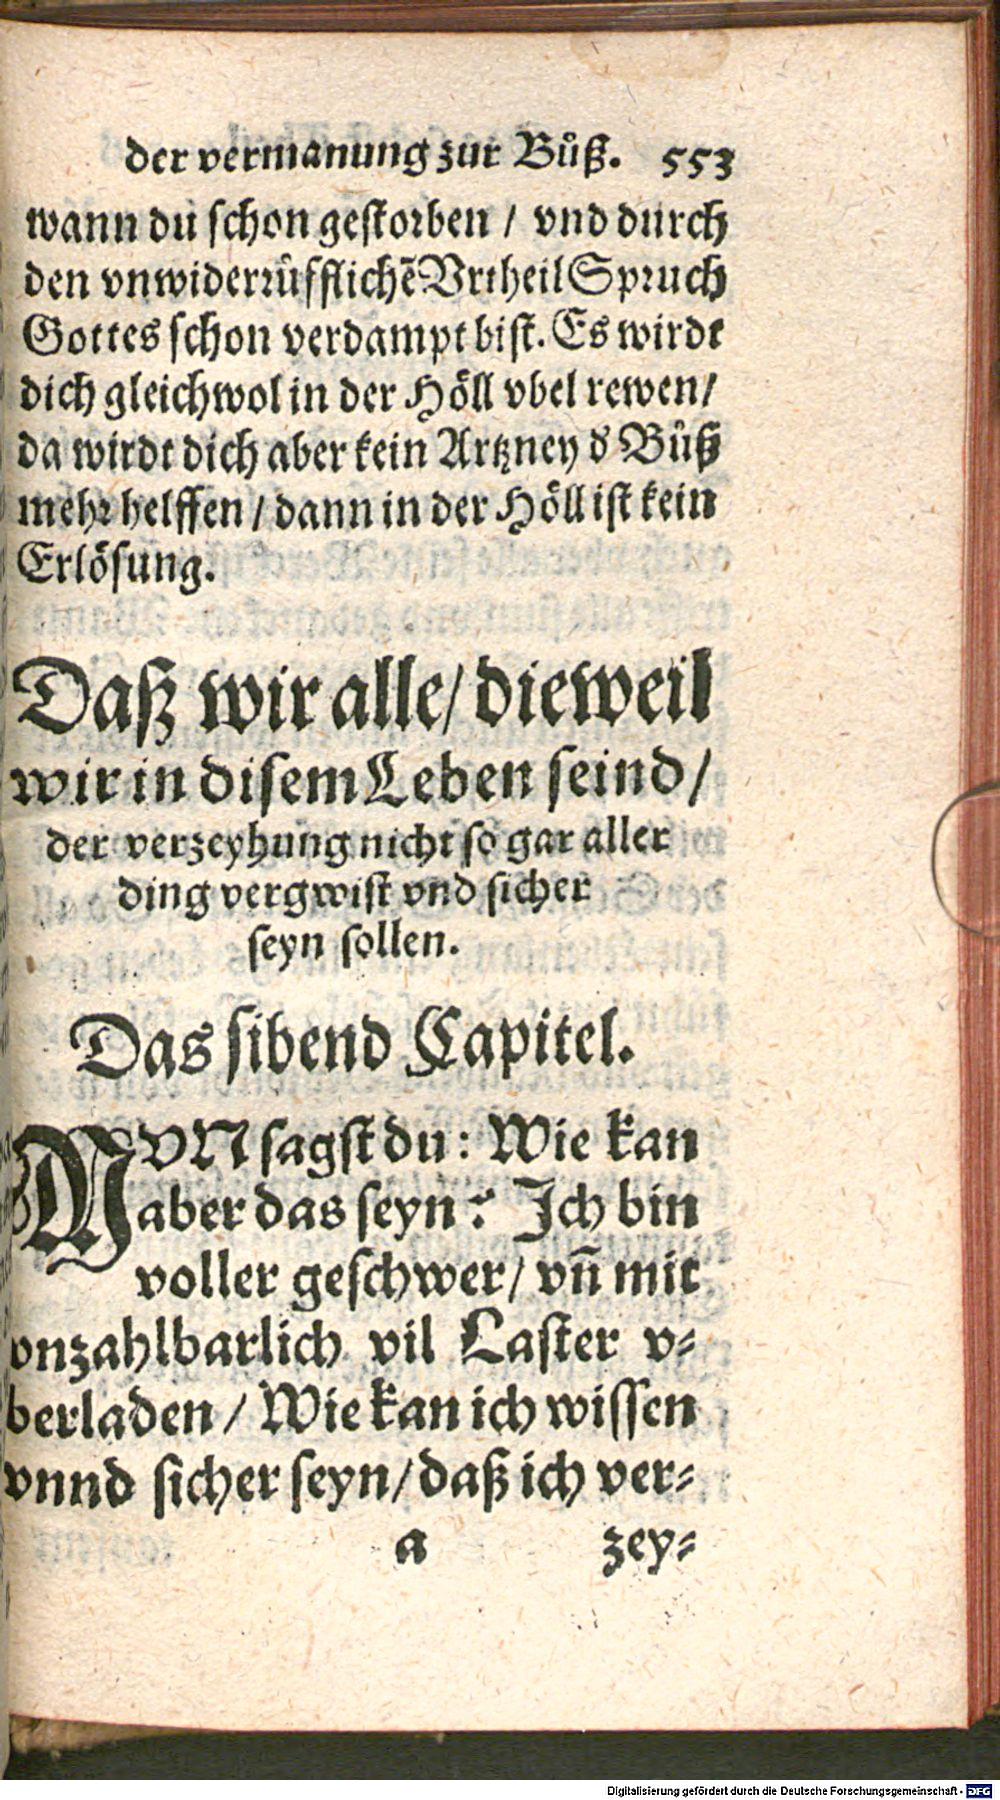 der vermanung zur Bůß. 553
wann du schon gestorben / vnd durch
den vnwiderrůfflichẽ Vrtheil Spruch
Gottes schon verdampt bist. Es wirdt
dich gleichwol in der Höll vbel rewen /
da wirdt dich aber kein Artzney d' Bůß
mehr helffen / dann in der Höll ist kein
Erlösung.
Daß wir alle / dieweil
wir in disem Leben seind /
der verzeyhung nicht so gar aller
ding vergwist vnd sicher
seyn sollen.
Das sibend Capitel.
NVN sagst du : Wie kan
aber das seyn ? Ich bin
voller geschwer / vñ mit
vnzahlbarlich vil Laster v-
berladen / Wie kan ich wissen
vnnd sicher seyn / daß ich ver-
a zey-
Digitalisierung gefördert durch die Deutsche Forschungsgemeinschaft - DFG